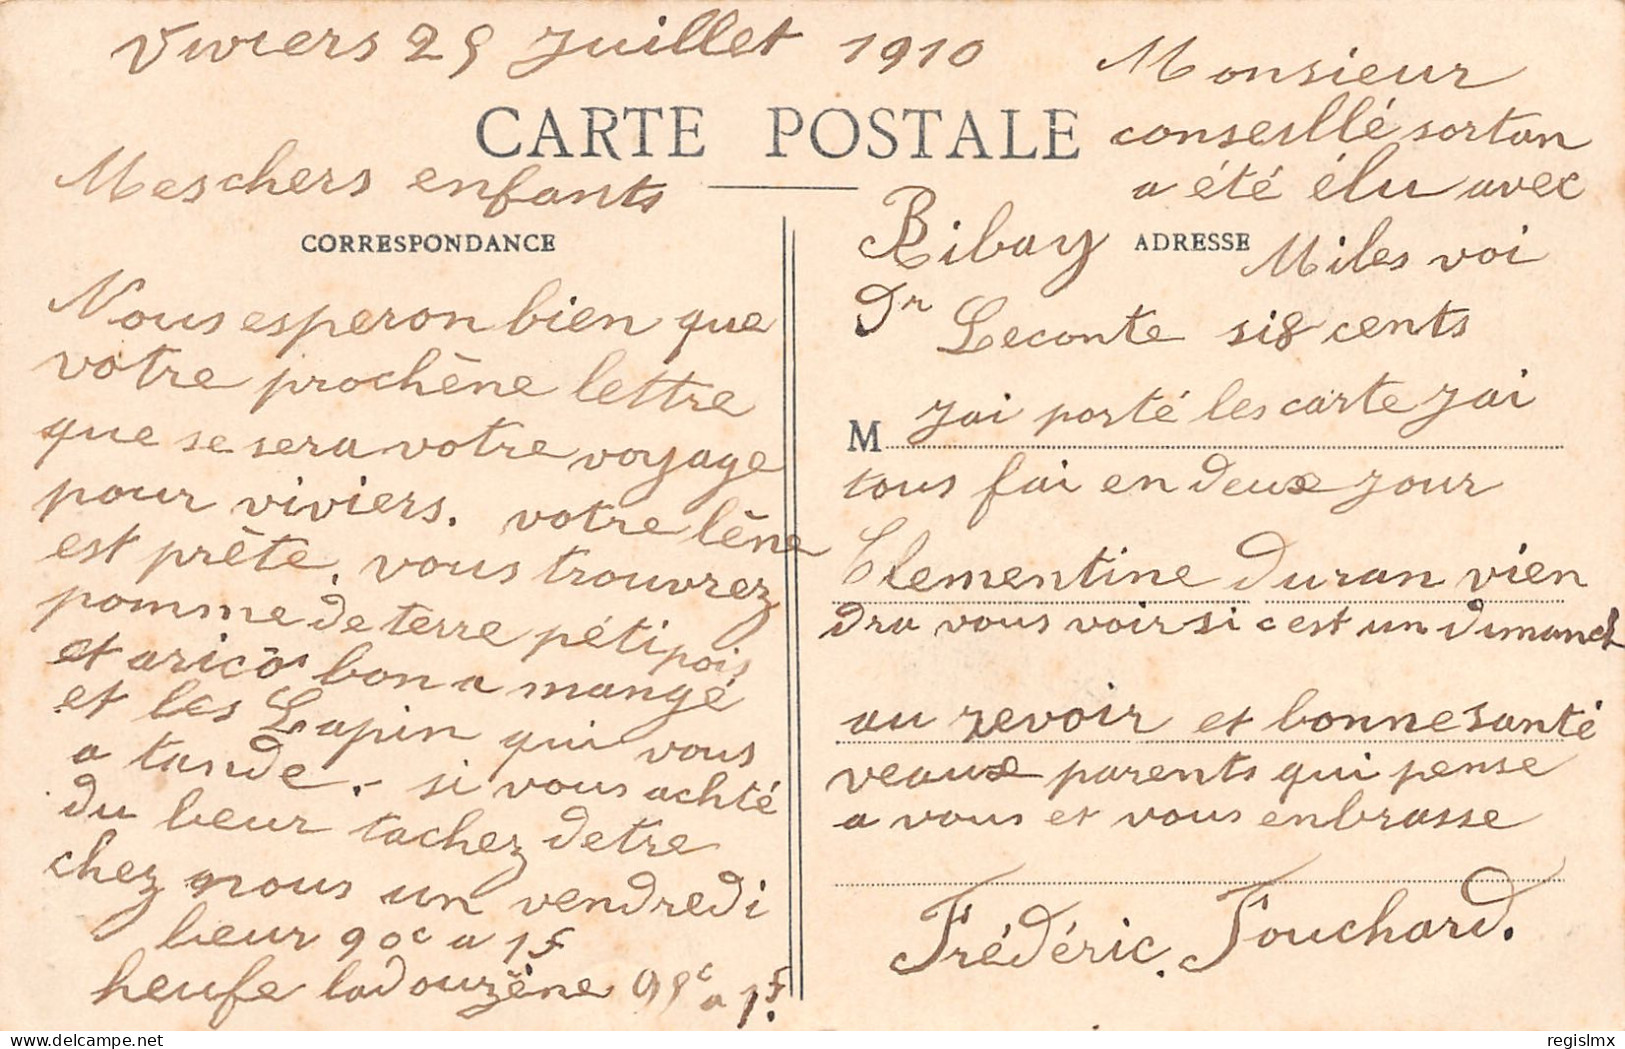 Viviers 25 Juillet 1910
CARTE POSTALE
Meschers enfants
CORRESPONDANCE
Nous esperon bien que
votre prochène lettre
que se sera votre voyage
pour viviers. votre lène
est prète, vous trouvrez
pomme de terre péti pois
et aricos bon a mangé
et les Lapin qui vous
a tande. - si vous achté
du beur tachez detre
chez nous un vendredi
beur 90c a 1f
heufe ladouzène 95c a 1f.
Monsieur
conseillé sortan
a été élu avec
Ribay ADRESSE Miles voi
Dr Leconte sis cents
M Jai porté les carte Jai
tous fai en deux jour
Clementine Duran vien
dra vous voir si c est un dimanch
au revoir et bonne santé
veaux parents qui pense
a vous et vous enbrasse
Frédéric. Fouchard.
regislmx